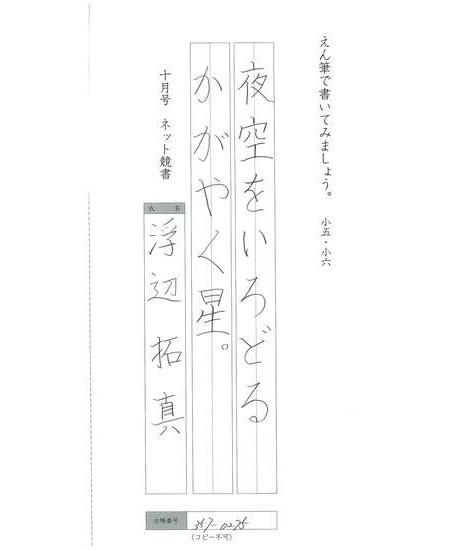 えん筆で書いてみましょう。 小五・小六
夜空をいろどる
かがやく星。
十月号 ネット競書
氏名
浮辺拓真
台帳番号
357-0275
(コピー不可)